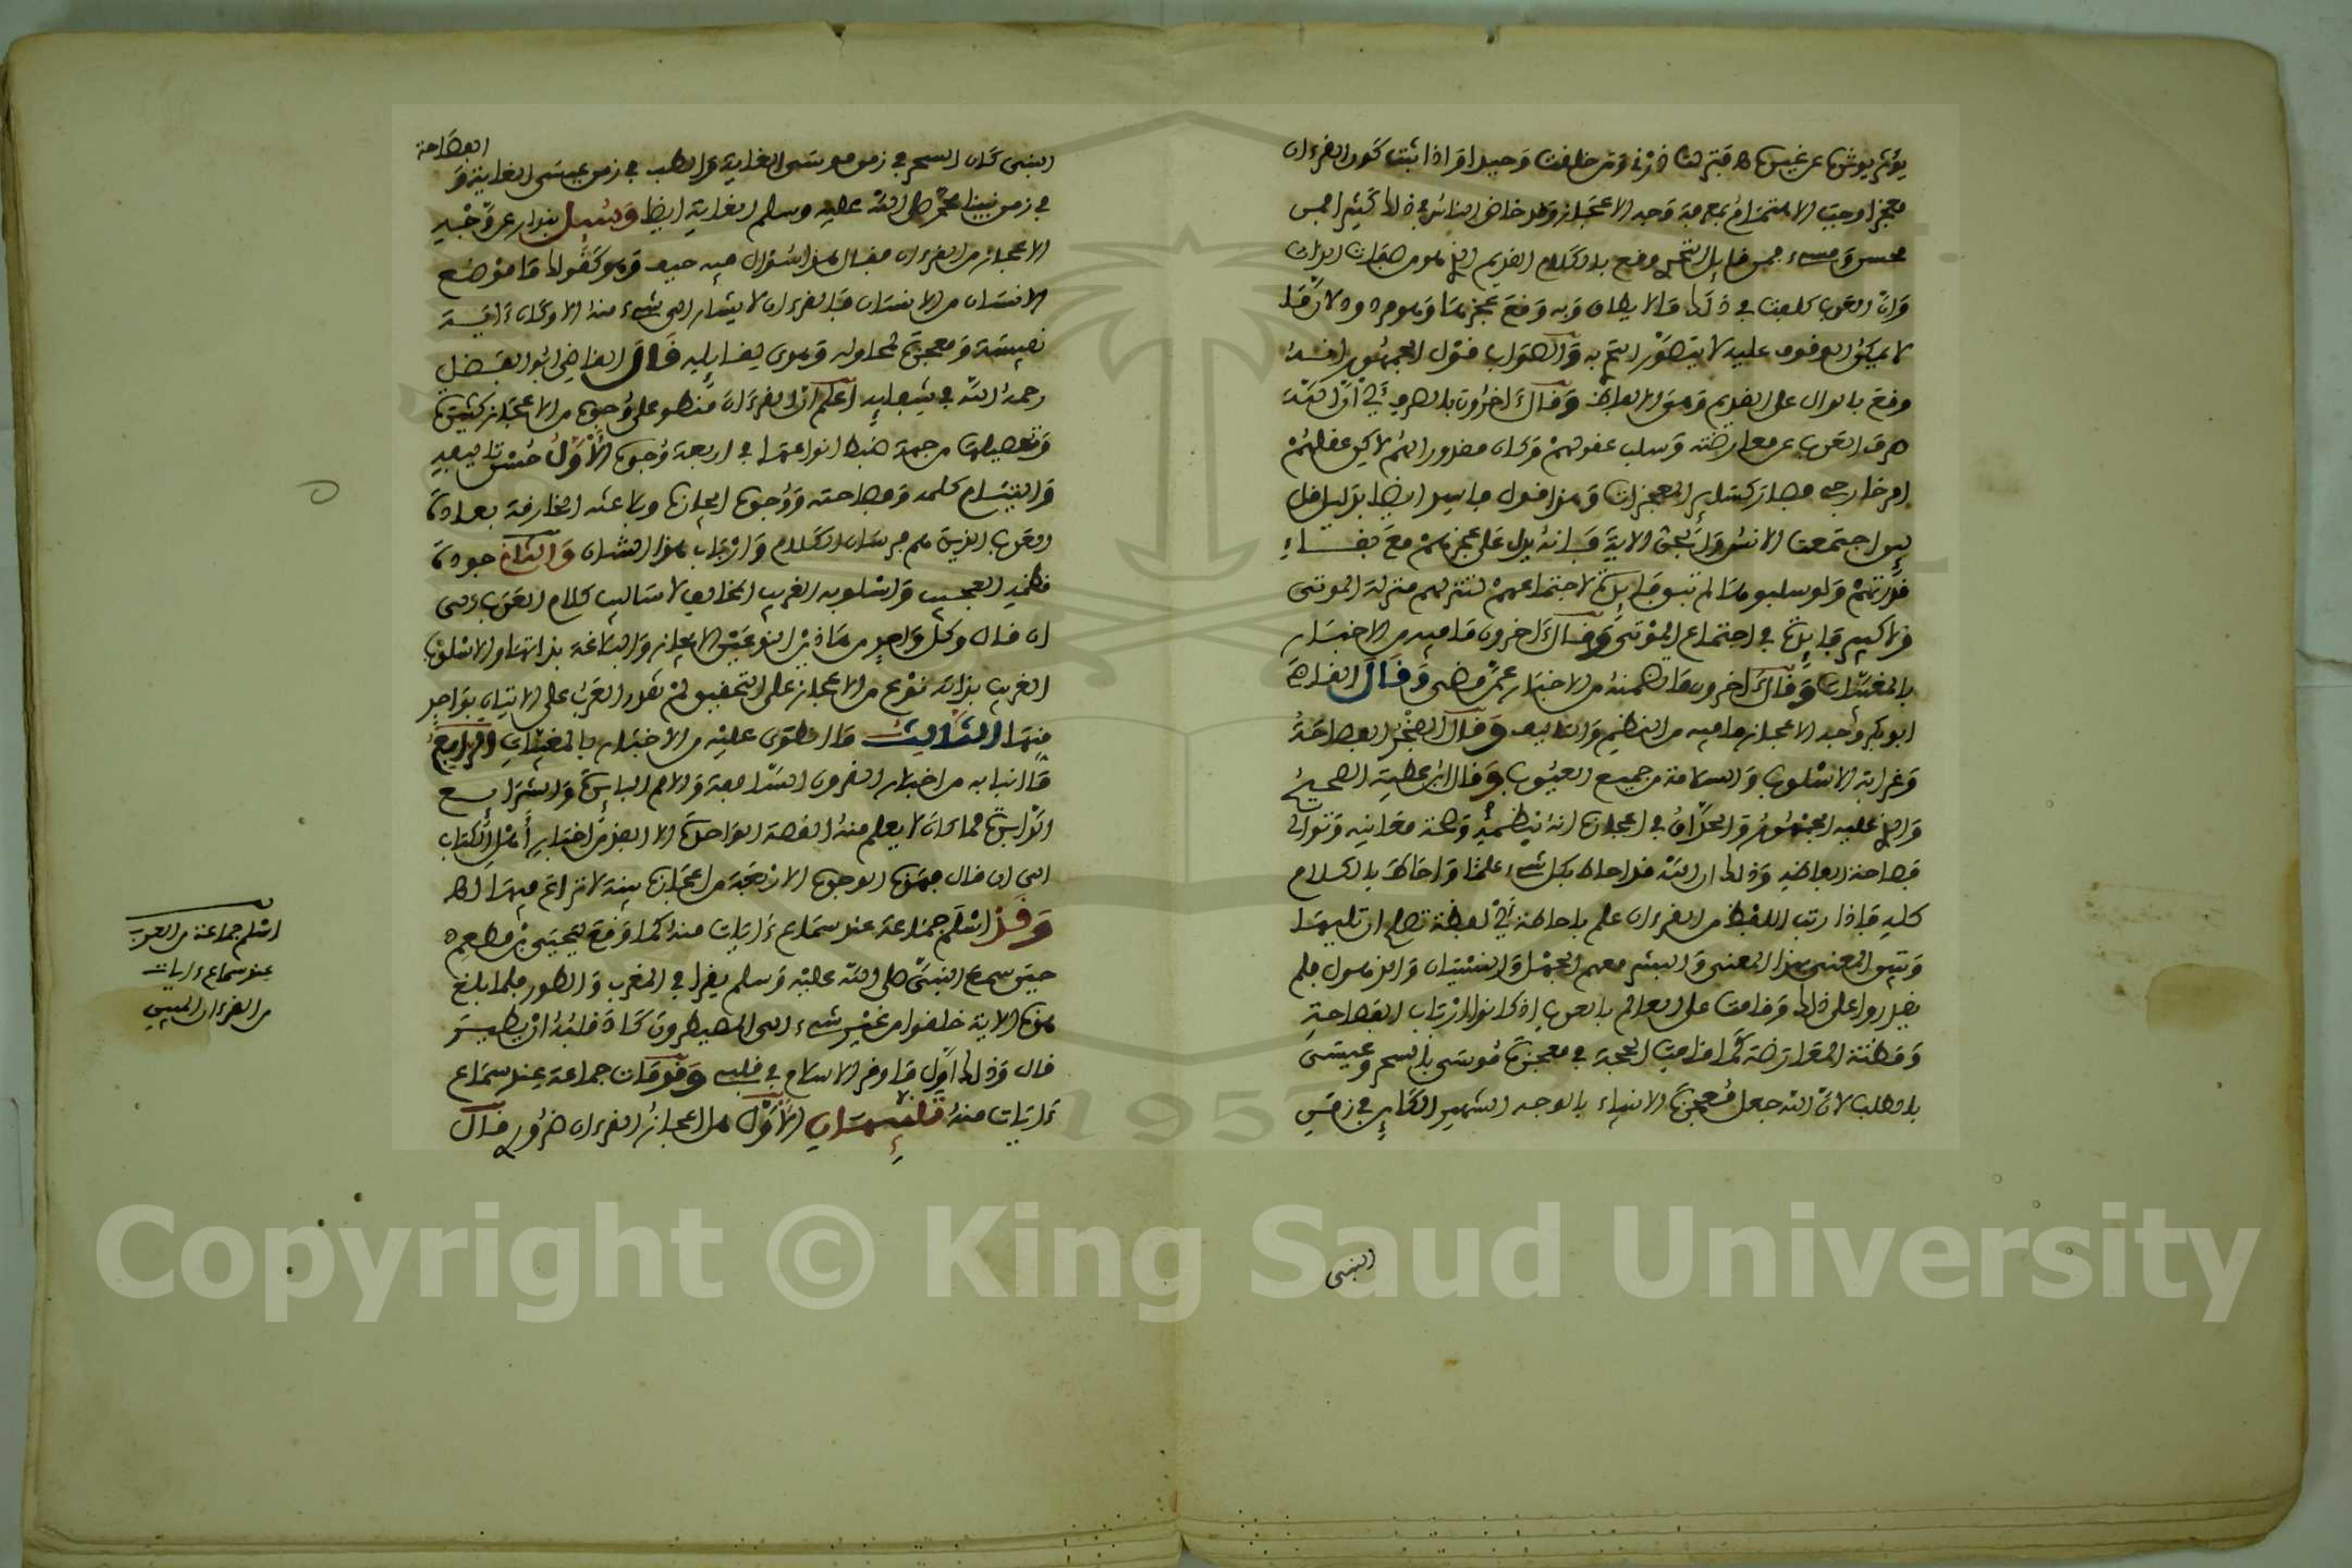 معجزا وجب الاهتمام بمعرفة وجه الاعجاز وقد خاض الناس في ذلك كثيرا فبين
محسن ومسيء فمن قايل التحدي وقع بالكلام القديم الذي هو من صفات الذات
وان العرب كلفت في ذلك ما لا يطاق وبه وقع عجزها وهو مردود لان ما
لا يمكن الوقوف عليه لا يتصور التحدي به والصواب قول الجمهور انه
وقع بالدال على القديم وهو الالفاظ وقال اخرون بالصرفة اي ان الله
صرف العرب عن معارضته وسلب عقولهم وكان مقدورا لهم لاكن عقلهم
امر خارجي فصار كساير المعجزات وهذا قول فاسد ايضا بدليل قل
لين اجتمعت الانس والجن الاية فانه يدل على عجزهم مع بقاء
قدرتهم ولو سلبوها لم تبق فايدة لاجتماعهم لتنزلهم منزلة الموتى
ولا كبير فايدة في اجتماع الموتى وقال اخرون ما فيه من الاخبار
بالمغيبات وقال اخرون ما تضمنه من الاخبار عمن مضى وقال القاضي
ابو بكر وجه الاعجاز ما فيه من النظم والتاليف وقال الفخر الفصاحة
وغرابة الاسلوب والسلامة من جميع العيوب وقال ابن عطية الصحيح
والذي عليه الجمهور والحذاق في اعجازه انه بنظمه وصحة معانيه وتوالي
فصاحة الفاظه وذلك ان الله قد احاط بكل شيء علما واحاط بالكلام
كله فاذا رتب اللفظ من القرءان علم باحاطته اي لفظة تصلح ان تليها
وتبين المعنى بهذا المعنى والبشر معهم الجهل والنسيان والذهول فلم
يقدروا على ذلك وقامت على العالم بالعرب اذ كانوا ارباب الفصاحة
ومظنة المعارضة كما قامت الحجة في معجزة موسى بالسحر وعيسى
بالطب لان الله جعل معجزة الانبياء بالوجه الشهير الكاين في زمن
النبي
الفصاحة
النبي كان السحر في زمن موسى الغاية والطب في زمن عيسى الغاية و
في زمن نبينا محمد صلى الله عليه وسلم الغاية ايضا وسئل بندار عن وجه
الاعجاز من القرءان فقال هذا سؤال فيه حيف وهو كقولك ما موضع
الانسان من الانسان فالقرءان لا يشار الى شيء منه الا وكان ءاية
نفيسة ومعجزة لمحاوله وهدى لقايله قال القاضي ابو الفضل
رحمه الله في شفايه اعلم ان القرءان منطو على وجوه من الاعجاز كثيرة
وتحصيلها من جهة ضبط انواعها في اربعة وجوه الاول حسن تاليفه
والتيام كلمه وفصاحته ووجوه ايجازه وبلاغته الخارقة بعادة
العرب الذين هم فرسان الكلام وارباب هذا الشان والثاني جودة
نظمه العجيب واسلوبه الغريب المخالف لاساليب كلام العرب الى
ان قال وكل واحد من هاذين النوعين الايجاز والبلاغة بذاتها والاسلوب
الغريب بذاته نوع من الاعجاز على التحقيق لم تقدر العرب على الاتيان بواحد
منهما الثالث ما انطوى عليه من الاخبار بالمغيبات الرابع
ما انبا به من اخبار القرون السالفة والامم البايدة والشرايع
الداثرة مما كان لا يعلم منه القصة الواحدة الا الفذ من احبار اهل الكتاب
الى ان قال فهذه الوجوه الاربعة من اعجازه بينة لا نزاع فيها اهـ
وقد اسلم جماعة عند سماع ءايات منه كما وقع لجبير بن مطعم
حين سمع النبي صلى الله عليه وسلم يقرا في المغرب والطور فلما بلغ
هذه الاية خلقوا من غير شيء الى المصيطرون كاد قلبه ان يطير
قال وذلك اول ما وقر الاسلام في قلبي وقد مات جماعة عند سماع
ءايات منه تنبيهان الاول هل اعجاز القرءان ضروري قال
اسلم جماعة من العرب
عند سماع ءايات
من القرءان المبين
Copyright © King Saud University
1957